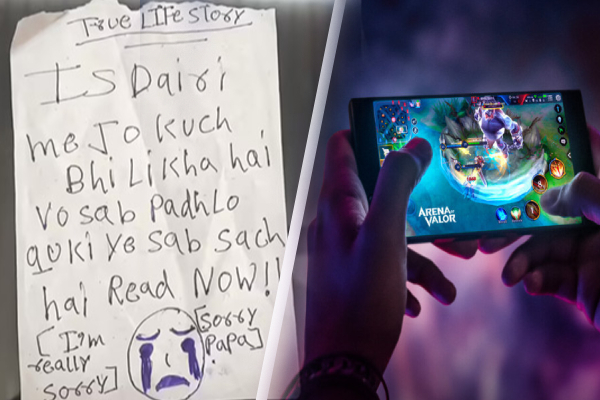 True LIFe Story
IS Dairi
me Jo kuch
Bhi Likha hai
Vo sab Padh Lo
quki ye sab sach
hai Read NOW!!
[I'm
really
sorry]
[sorry
Papa]
ARENA OF
VALOR